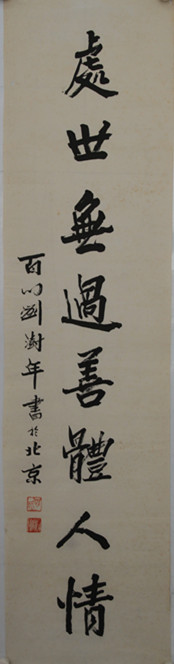 處世無過善體人情
百門劉澍年書於北京